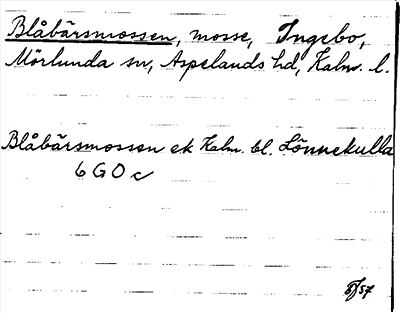 Blåbärsmossen, mosse, Ingebo,
Mörlunda sn, Aspelands hd, Kalm. l.
Blåbärsmossen ek Kalm. bl. Lönnekulla
6 G O c
57